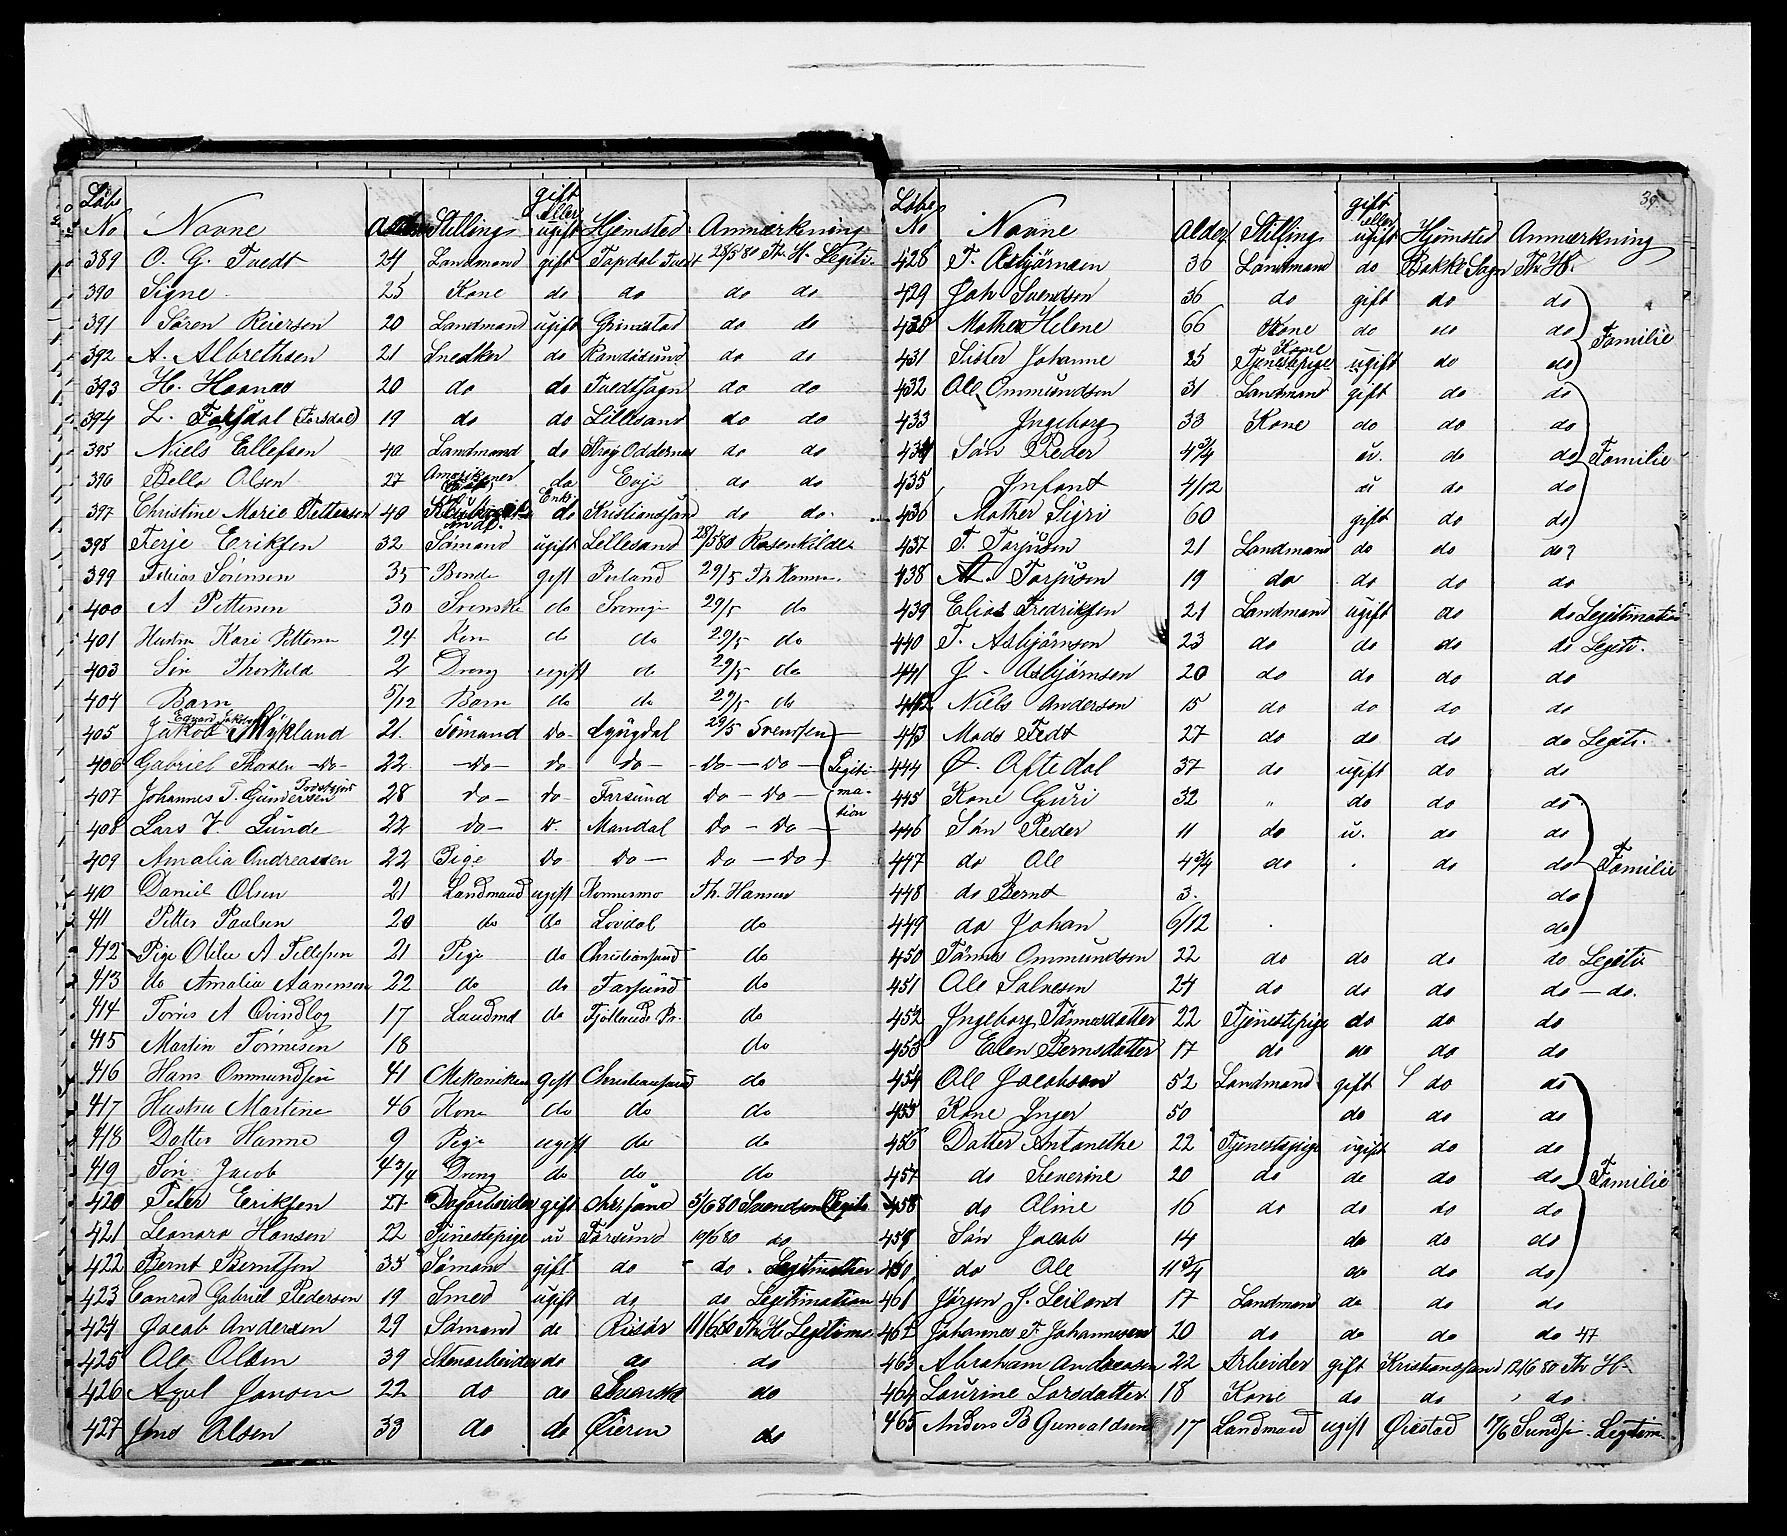 Løbs No Navne Alder Stilling gift eller ugift Hjemsted Anmærkning
389 O. G. Tvedt 24 Landmand gift Topdal Tvedt 28/5 80 Th. H. Legiti.
390 Signe 25 Kone do do do do
391 Søren Reiersen 20 Landmand ugift Grimstad do do
392 A. Albrethsen 21 Snedker do Randøsund do do
393 H. Haanes 20 do do Tvedt Sogn do do
394 L. (Forsdal) 19 do do Lillesand do do
395 Niels Ellefsen 40 Landmand do Oddernes do do
396 Olsen 27 Amerikaner do Evje do do
397 Christine Marie Pettersen 40 Enke do Kristiansand do do
398 Terje Eriksen 32 Sømand ugift Lillesand 28/5 80 Rosenkilde
399 Tobias Sørensen 35 Bonde gift 29/5 Th Hansen
400 A Pettersen 30 Svenske do Sverige 29/5 do
401 Hustru Kari Pettersen 24 Kone do do 29/5 do
403 Søn Thorkild 2 Dreng ugift do 29/5 do
404 Barn 5/12 Barn do do 29/5 do
405 Jakob Mykland 21 Sømand do Lyngdal 29/5 Svendsen
406 Gabriel Thorsen do 22 do do do do do Legiti
407 Johannes T. Gundersen 28 do do Farsund do do ma-
408 Lars T Lunde 22 do do Mandal do do tion
409 Amalia Andreassen 22 Pige do do do do
410 Daniel Olsen 21 Landmand ugift Th. Hansen
411 Petter Paulsen 20 do do do
412 Pige A Tellefsen 21 Pige do Christiansand do
413 do Amalia Aanensen 22 do do Farsund do
414 Tørris A 17 Landmd do Fjotlands Pr. do
415 Martin Tønnesen 18 do
416 Hans Ommundsen 41 Mekaniker gift Christiansand do
417 Hustru Martine 46 Kone do do do
418 Datter Hanne 9 Pige ugift do do
419 Søn Jacob 4 3/4 Dreng do do do
420 Peter Eeriksen 27 Dagarbeider gift Chrsand 5/6 80 Svendsen Legiti
421 Leonora Hansen 22 Tjenestepige u Farsund 10/6 80 do
422 Bernt Berntsen 35 Sømand gift do do Legitimation
423 Conrad Gabriel Pedersen 19 Smed ugift do do Legitimation
424 Jacob Andersen 29 Sømand do Risør 11/6 80 Th H Legitima
425 Ole Olsen 39 Stenarbeider do do do
426 Axel Jansen 22 do do Svensk do
427 Jens Olsen 33 do do Øieren do
39.
Løbs No Navne Alder Stilling gift eller ugift Hjemsted Anmærkning
428 T. Asbjörnsen 36 Landmand do Bakke Sogn Th H.
429 Joh Svendsen 36 do gift do do
430 Mother Helene 66 Kone do do do Familie
431 Sister Johanne 25 Kone Tjenestepige ugift do do
432 Ole Ommundsen 31 Landmand gift do do
433 Ingeborg 33 Kone do do do
434 Sön Peder 4 3/4 u. do do Familie
435 Infant 4/12 u do do
436 Mother Sigri 60 gift do do
437 T. Torjusen 21 Landmand do do do?
438 A. Torjusen 19 do do do do
439 Elias Fredriksen 21 Landmand ugift do do Legitimation
440 T. Asbjörnson 23 do do do do Legiti.
441 J. Asbjörnson 20 do do do do
442 Niels Anderson 15 do do do do
443 Mads Fedt 27 do do do do Legiti.
444 O. Oftedal 37 do ugift do do
445 Kone Guri 32 " do do do
446 Sön Peder 11 do u. do do
447 do Ole 4 3/4 do . do do Familie
448 do Bernt 3. do
449 do Johan 6/12 do
450 Tönnes Ommundsen 22 do do do do Legiti
451 Ole Salvesen 24 do do do do - do.
452 Ingeborg Tönnesdatter 22 Tjenestepige do do do
453 Elen Berntsdatter 17 do do do do
454 Ole Jacobson 52 Landmand gift do do
455 Kone Inger 50 do do do
456 Datter Antonethe 22 Tjenestepige ugift do do
457 do Severine 20 do do do do Familie
458 do Oline 16 do do do do
459 Sön Jacob 14 do do do
460 do Ole 11 3/4 do do do
461 Jörgen J. Leiland 17 Landmand do do do
462 Johannes T. Johannesen 20 do do do do 47
463 Abraham Andreasen 22 Arbeider gift Kristiansand 12/6 80 Th H.
464 Laurine Larsdatter 18 Kone do do do
465 Anders B Gunvaldsen 17 Landmand ugift Øiestad 17/6 Legitim.